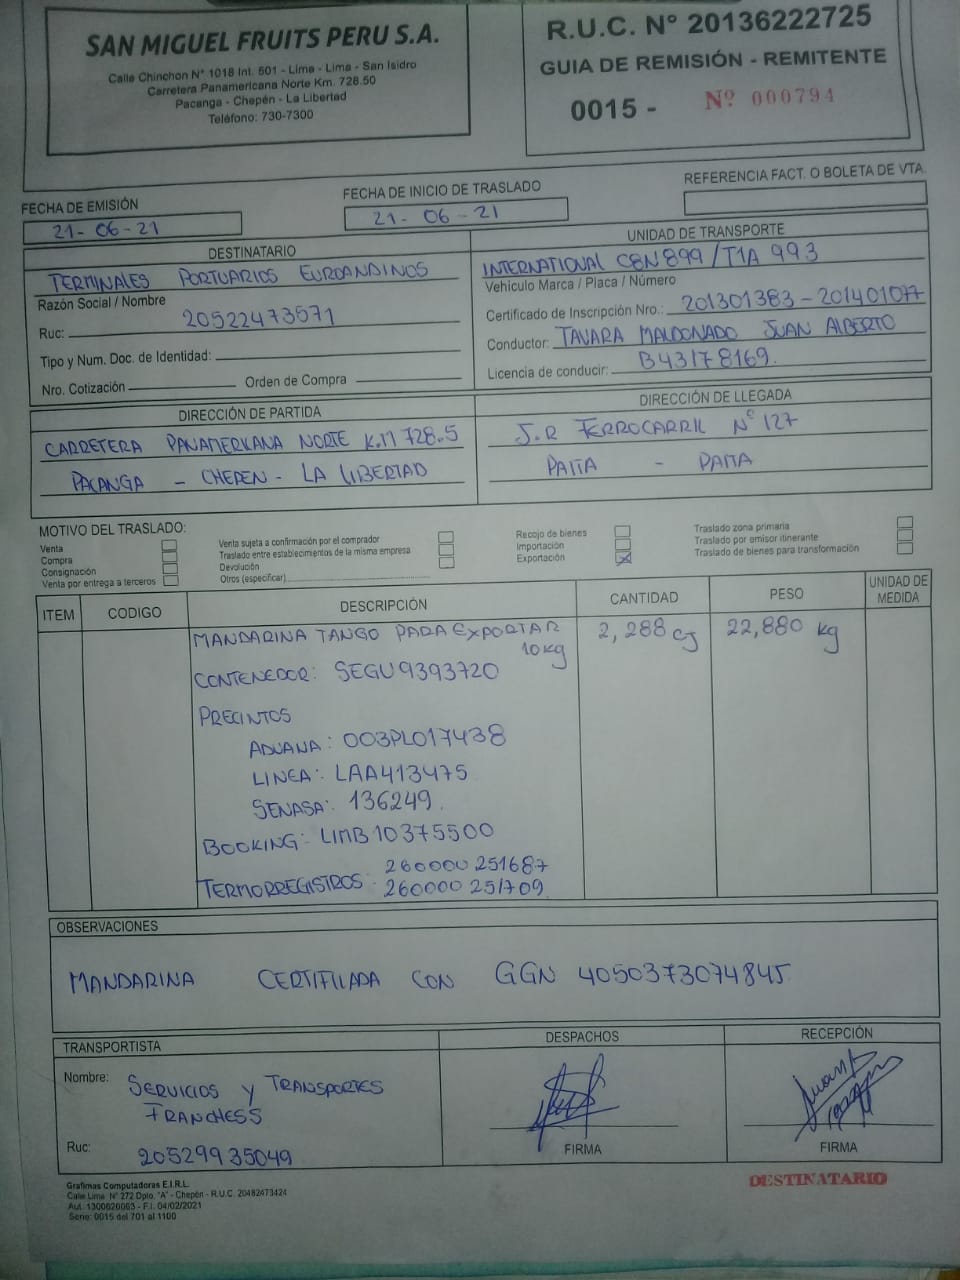 SAN MIGUEL FRUITS PERU S.A.
Calle Chinchon N° 1018 Int. 501 - Lima - Lima - San Isidro
Carretera Panamericana Norte Km. 728.50
Pacanga - Chepén - La Libertad
Teléfono: 730-7300
R.U.C. N° 20136222725
GUIA DE REMISIÓN - REMITENTE
0015 - Nº 000794
FECHA DE EMISIÓN
21-06-21
FECHA DE INICIO DE TRASLADO
21-06-21
REFERENCIA FACT. O BOLETA DE VTA.
DESTINATARIO
TERMINALES PORTUARIOS EUROANDINOS
Razón Social / Nombre
Ruc: 20522473571
Tipo y Num. Doc. de Identidad:
Nro. Cotización Orden de Compra
UNIDAD DE TRANSPORTE
INTERNATIONAL C8N899/T1A 993
Vehiculo Marca / Placa / Número
Certificado de Inscripción Nro.: 201301383-201401077
Conductor: TAVARA MALDONADO JUAN ALBERTO
Licencia de conducir: B43178169.
DIRECCIÓN DE PARTIDA
CARRETERA PANAMERICANA NORTE K.M 728.5
PACANGA - CHEPEN - LA LIBERTAD
DIRECCIÓN DE LLEGADA
J.R FERROCARRIL N° 127
PAITA - PAITA
MOTIVO DEL TRASLADO:
Venta
Compra
Consignación
Venta por entrega a terceros
Venta sujeta a confirmación por el comprador
Traslado entre establecimientos de la misma empresa
Devolución
Otros (especificar)
Recojo de bienes
Importación
Exportación X
Traslado zona primaria
Traslado por emisor itinerante
Traslado de bienes para transformación
ITEM CODIGO DESCRIPCIÓN CANTIDAD PESO UNIDAD DE MEDIDA
MANDARINA TANGO PARA EXPORTAR 2,288 cj 22,880 kg
10kg
CONTENEDOR: SEGU9393720
PRECINTOS
ADUANA: 003PL017438
LINEA: LAA413475
SENASA: 136249.
BOOKING: LIMB10375500
TERMORREGISTROS: 260000251687
260000251709
OBSERVACIONES
MANDARINA CERTIFICADA CON GGN 4050373074845
TRANSPORTISTA
Nombre: SERVICIOS Y TRANSPORTES
FRANCHESS
Ruc: 20529935049
DESPACHOS
FIRMA
RECEPCIÓN
FIRMA
Grafimas Computadoras E.I.R.L.
Calle Lima N° 272 Dpto. "A" - Chepén - R.U.C. 20482473424
Serie: 0015 del 701 al 1100
DESTINATARIO